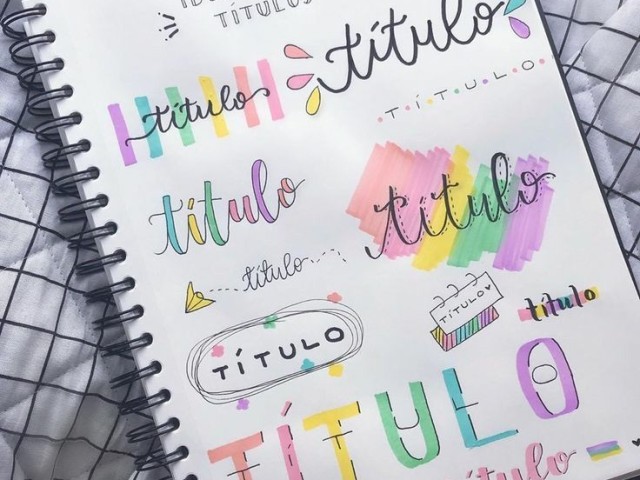 TÍTULOS
título
título
TÍTULO
título
título
título
TÍTULO
título
TÍTULO
TÍTULO
título